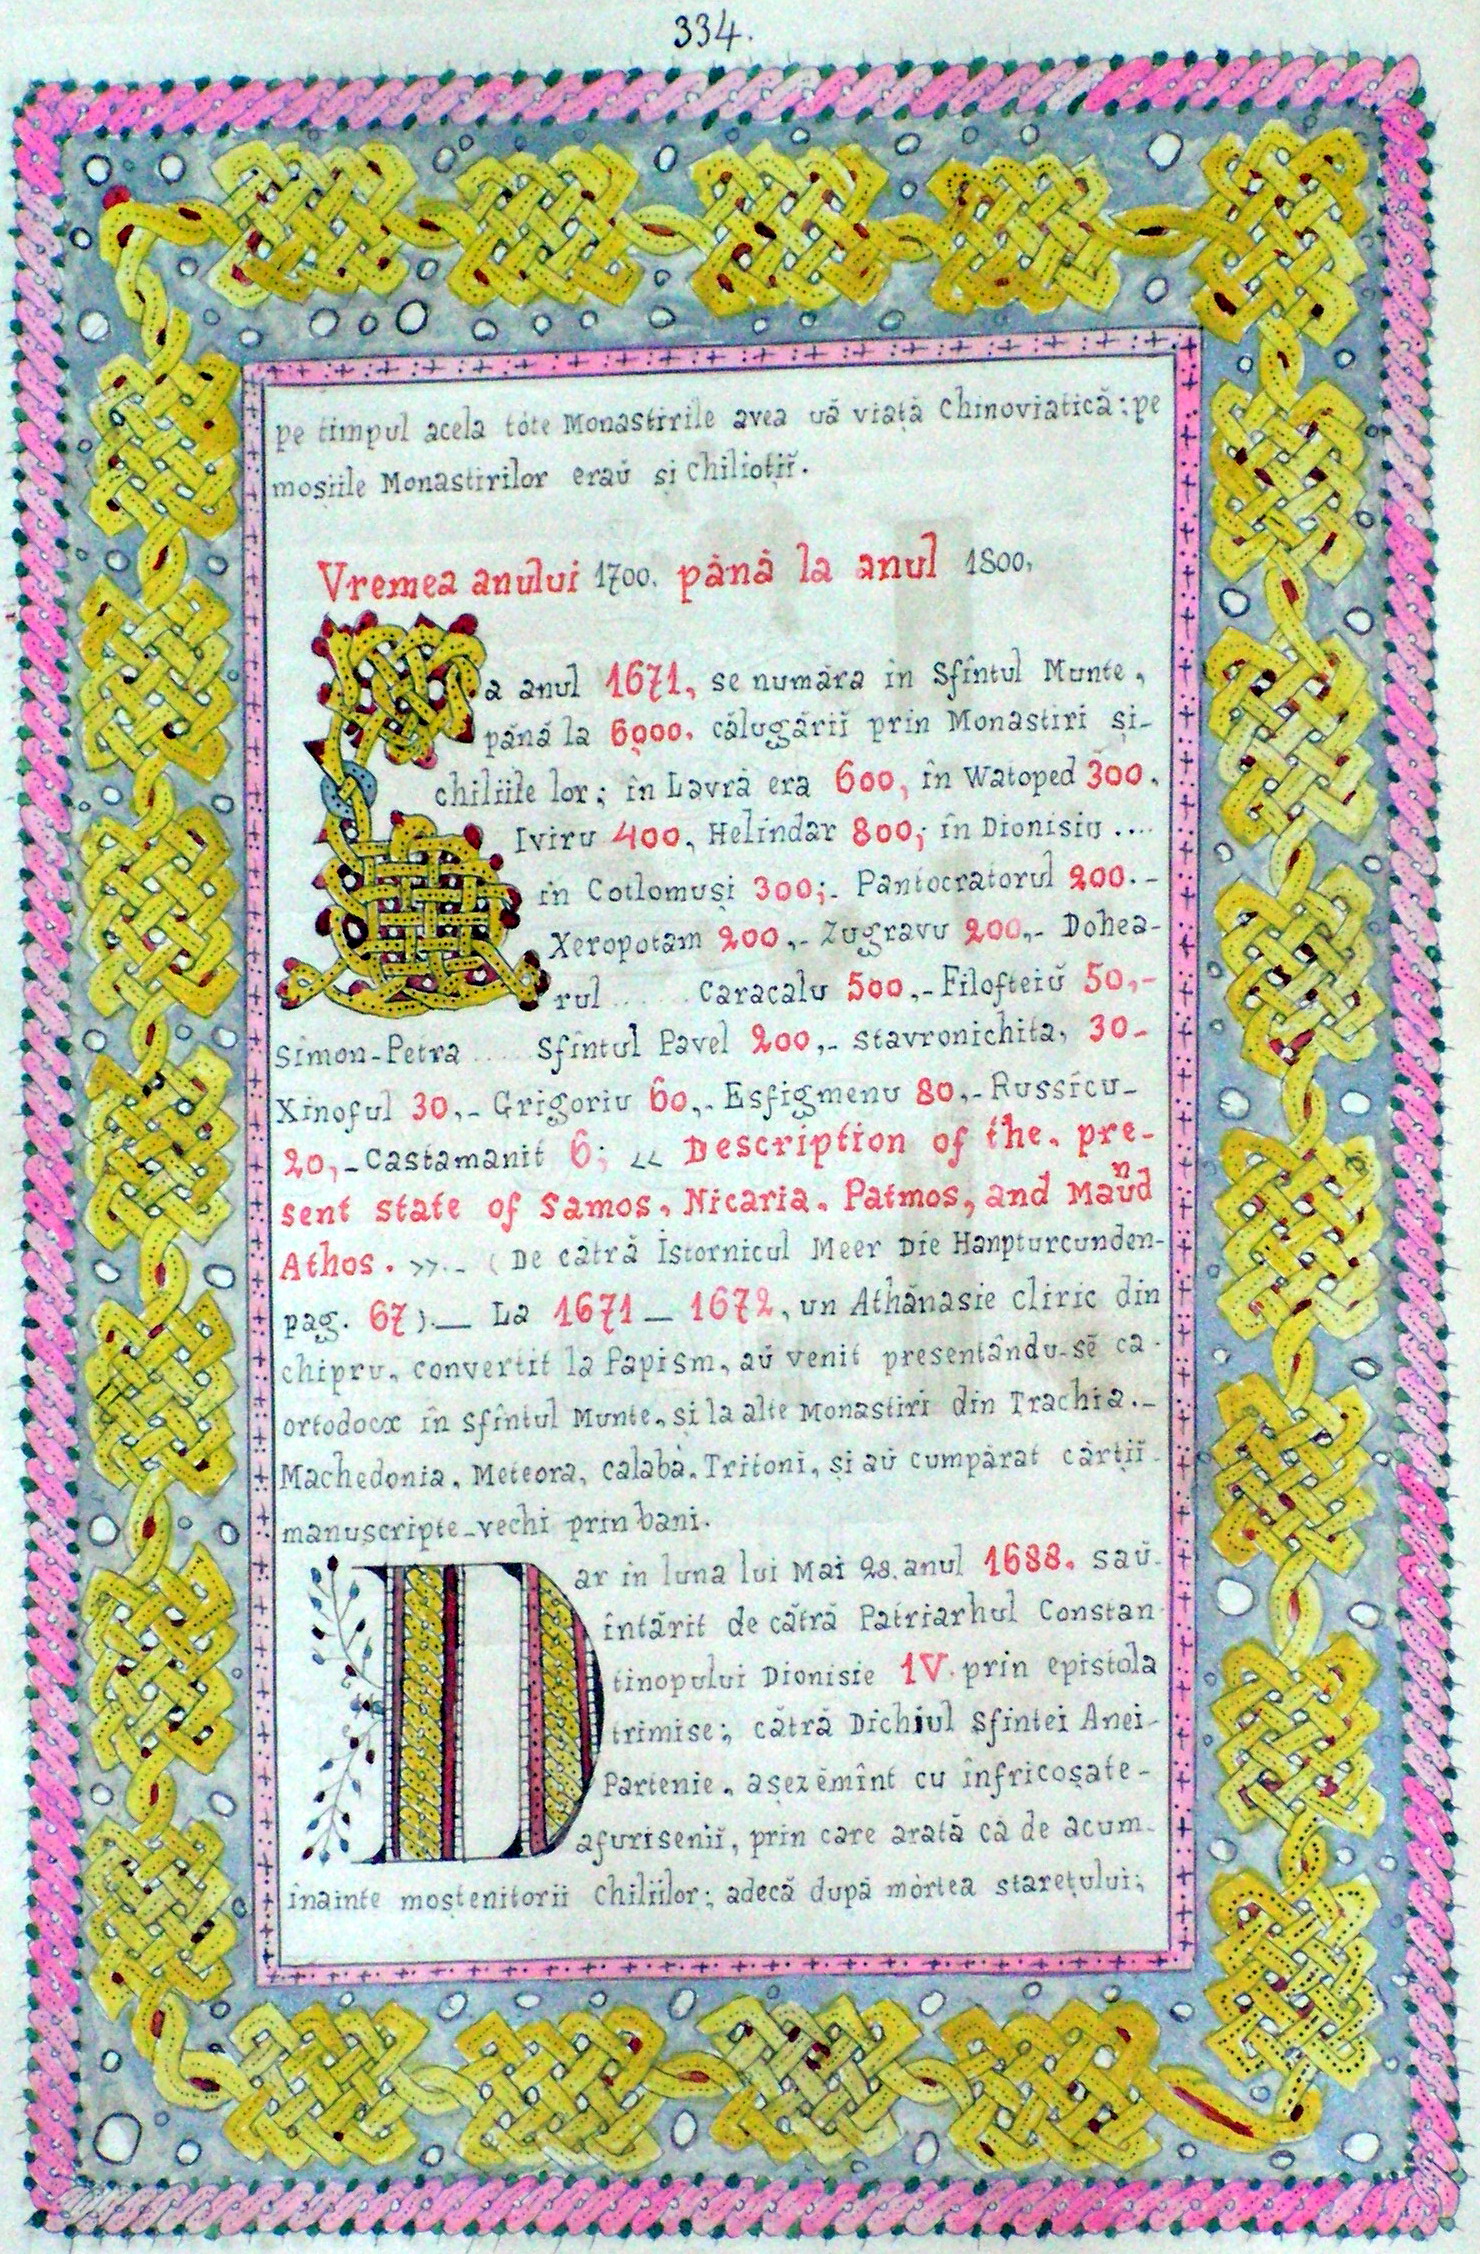 334.
pe timpul acela tóte Monastirile avea uă viață Chinoviatică; pe
moșiile Monastirilor eraŭ și Chilioțiĭ.
Vremea anului 1700. până la anul 1800,
La anul 1671, se număra în Sfîntul Munte,
până la 6000. călugăriĭ prin Monastiri și-
chiliile lor; în Lavra era 600, în Watoped 300.
Iviru 400, Helindar 800; în Dionisiu ....
în Cotlomuși 300;- Pantocratorul 200.-
Xeropotam 200,- Zugravu 200,- Dohea-
rul ...... Caracalu 500,- Filofteiŭ 50,-
Simon-Petra .... Sfîntul Pavel 200,- Stavronichita, 30-
Xinoful 30,- Grigoriu 60,- Esfigmenu 80,- Russicu-
20,- Castamanit 6; << Description of the, pre-
sent state of Samos, Nicaria, Patmos, and Maund
Athos. >>.- ( De cătră Istornicul Meer Die Hanpturcunden-
pag. 67).— La 1671 — 1672, un Athănasie cliric din
chipru, convertit la Papism, aŭ venit presentându-sĕ ca
ortodocx în sfîntul Munte, și la alte Monastiri din Trachia.-
Machedonia, Meteora, Calaba, Tritoni, și aŭ cumpărat cărțiĭ
manuscripte-vechi prin bani.
Dar in luna lui Mai 28. anul 1688. saŭ
întărit de cătră Patriarhul Constan
tinopului Dionisie 1V. prin epistola
trimise; cătră Dichiul Sfintei Anei-
Partenie, așezĕmînt cu înfricoșate-
afuriseniĭ, prin care arată ca de acum-
înainte moștenitorii Chiliilor; adecă după mórtea starețului;